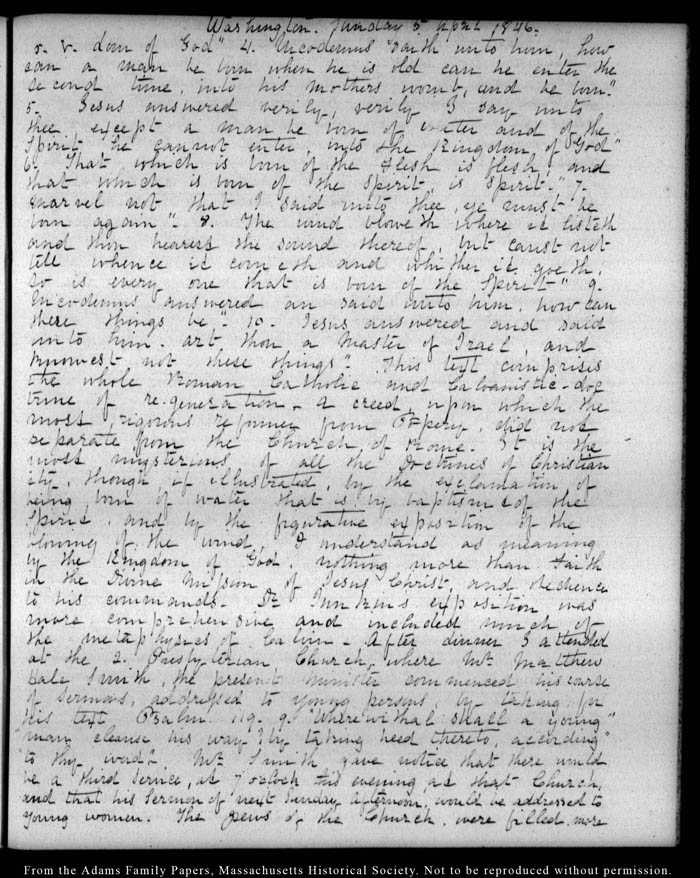 Washington. Sunday 5 April 1846.
dom of God" 4. Nicodemus saith unto him, how
can a man be born when he is old can he enter the
second time, into his mothers womb, and be born."
5. Jesus answered verily, verily I say unto
thee, except a man be born of water and of the
Spirit he cannot enter, into the Kingdom of God"
6. That which is born of the flesh is flesh, and
that which is born of the Spirit, is Spirit." 7.
Marvel not that I said unto thee, ye must be
born again". 8. The wind bloweth where it listeth
and thou hearest the sound thereof, but canst not
tell whence it cometh and whither it goeth,
so is every one that is born of the Spirit" 9.
Nicodemus answered an said unto him, how can
these things be". 10. Jesus answered and said
unto him. art thou a Master of Israel, and
knowest not these things". This text comprises
the whole Roman Catholic and Calvanistic-doc
trine of re-generation. a creed, upon which the
most, rigorous reformer from Popery, did not
separate from the Church of Rome. It is the
most mysterious of all the Doctrines of Christian
ity, though if illustrated, by the exclamation of
being born of water that is by baptism & of the
Spirit, and by the figurative exposition of the
blowing of the wind, I understand as meaning
by the Kingdom of God, nothing more than faith
in the Divine Mission of Jesus Christ, and obedience
to his commands. Dr Junkin's exposition was
more comprehensive and included much of
the metaphysics of Calvin. After dinner I attended
at the 2. Presbyterian Church, where Mr Matthew
Hale Smith, the present Minister commenced his course
of Sermons, addressed to young persons, by taking for
his text Psalm 119. 9. "Wherewithal shall a young"
"man cleanse his way? by taking heed thereto, according"
to thy word". Mr Smith gave notice that there would
be a third Service, at 7 o'clock this evening at that Church,
and that his Sermon of next Sunday afternoon, would be addressed to
young women. The pews of the Church were filled, more
From the Adams Family Papers, Massachusetts Historical Society. Not to be reproduced without permission.